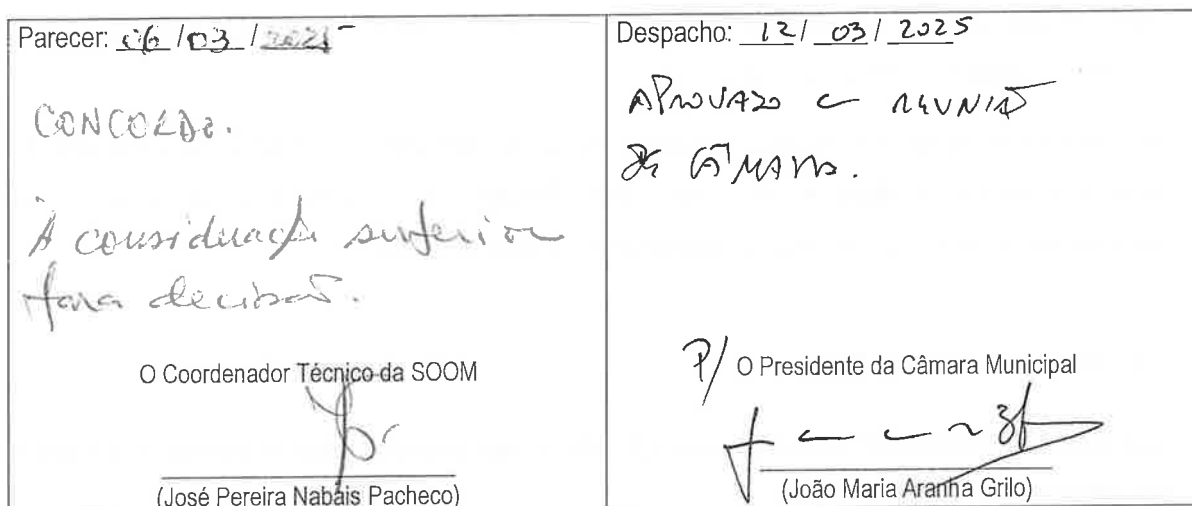 Parecer: 06 / 03 / 2025
CONCORDO.
À consideração superior
para decisão.
O Coordenador Técnico da SOOM
(José Pereira Nabais Pacheco)
Despacho: 12 / 03 / 2025
APROVADO REUNIÃO
DE CÂMARA.
P/ O Presidente da Câmara Municipal
(João Maria Aranha Grilo)